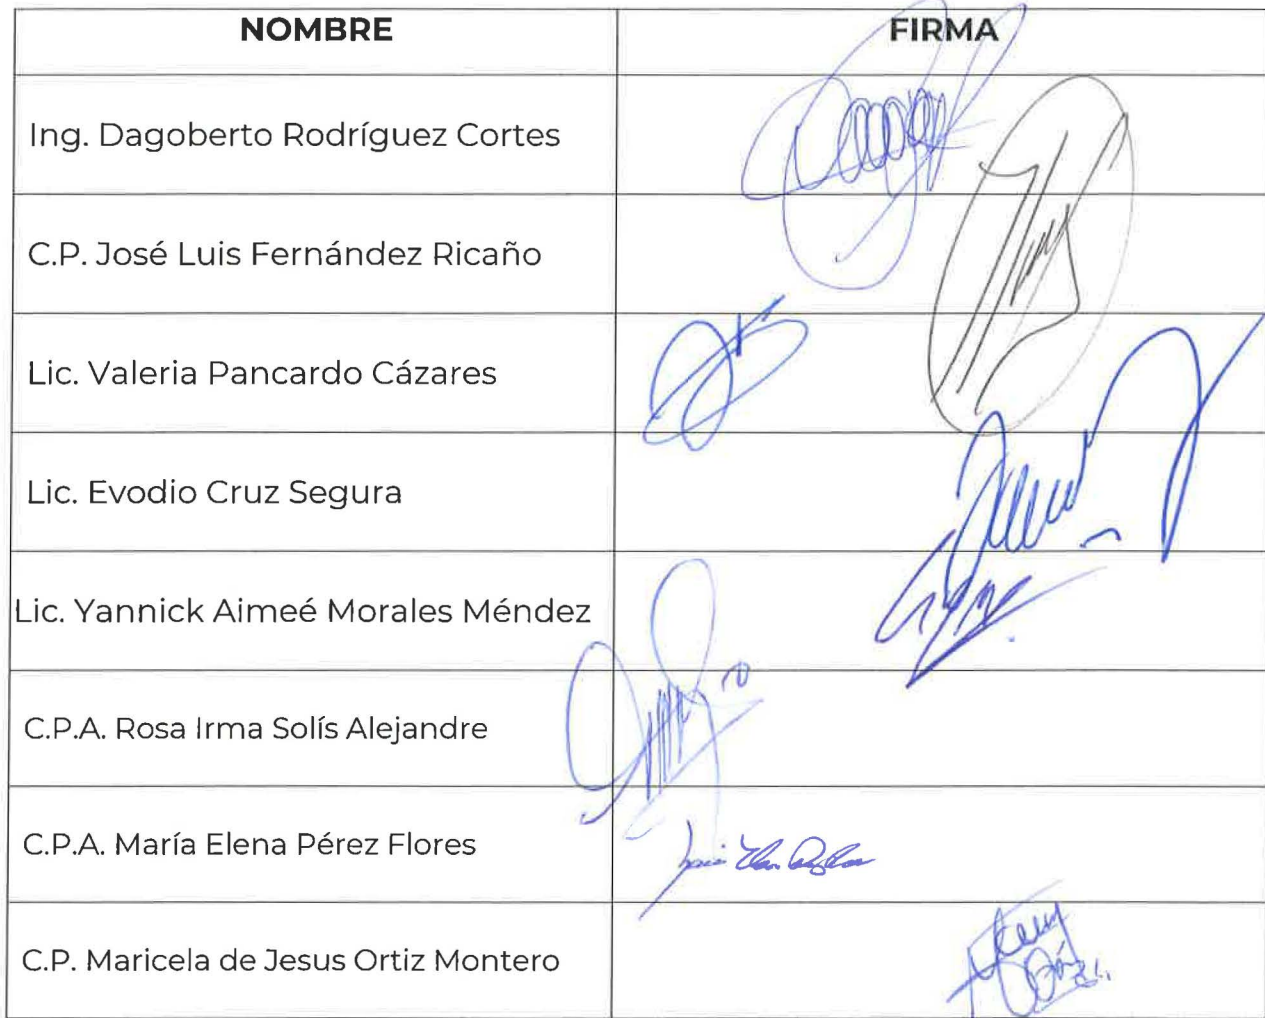 NOMBRE FIRMA
Ing. Dagoberto Rodríguez Cortes
C.P. José Luis Fernández Ricaño
Lic. Valeria Pancardo Cázares
Lic. Evodio Cruz Segura
Lic. Yannick Aimeé Morales Méndez
C.P.A. Rosa Irma Solís Alejandre
C.P.A. María Elena Pérez Flores
C.P. Maricela de Jesus Ortiz Montero